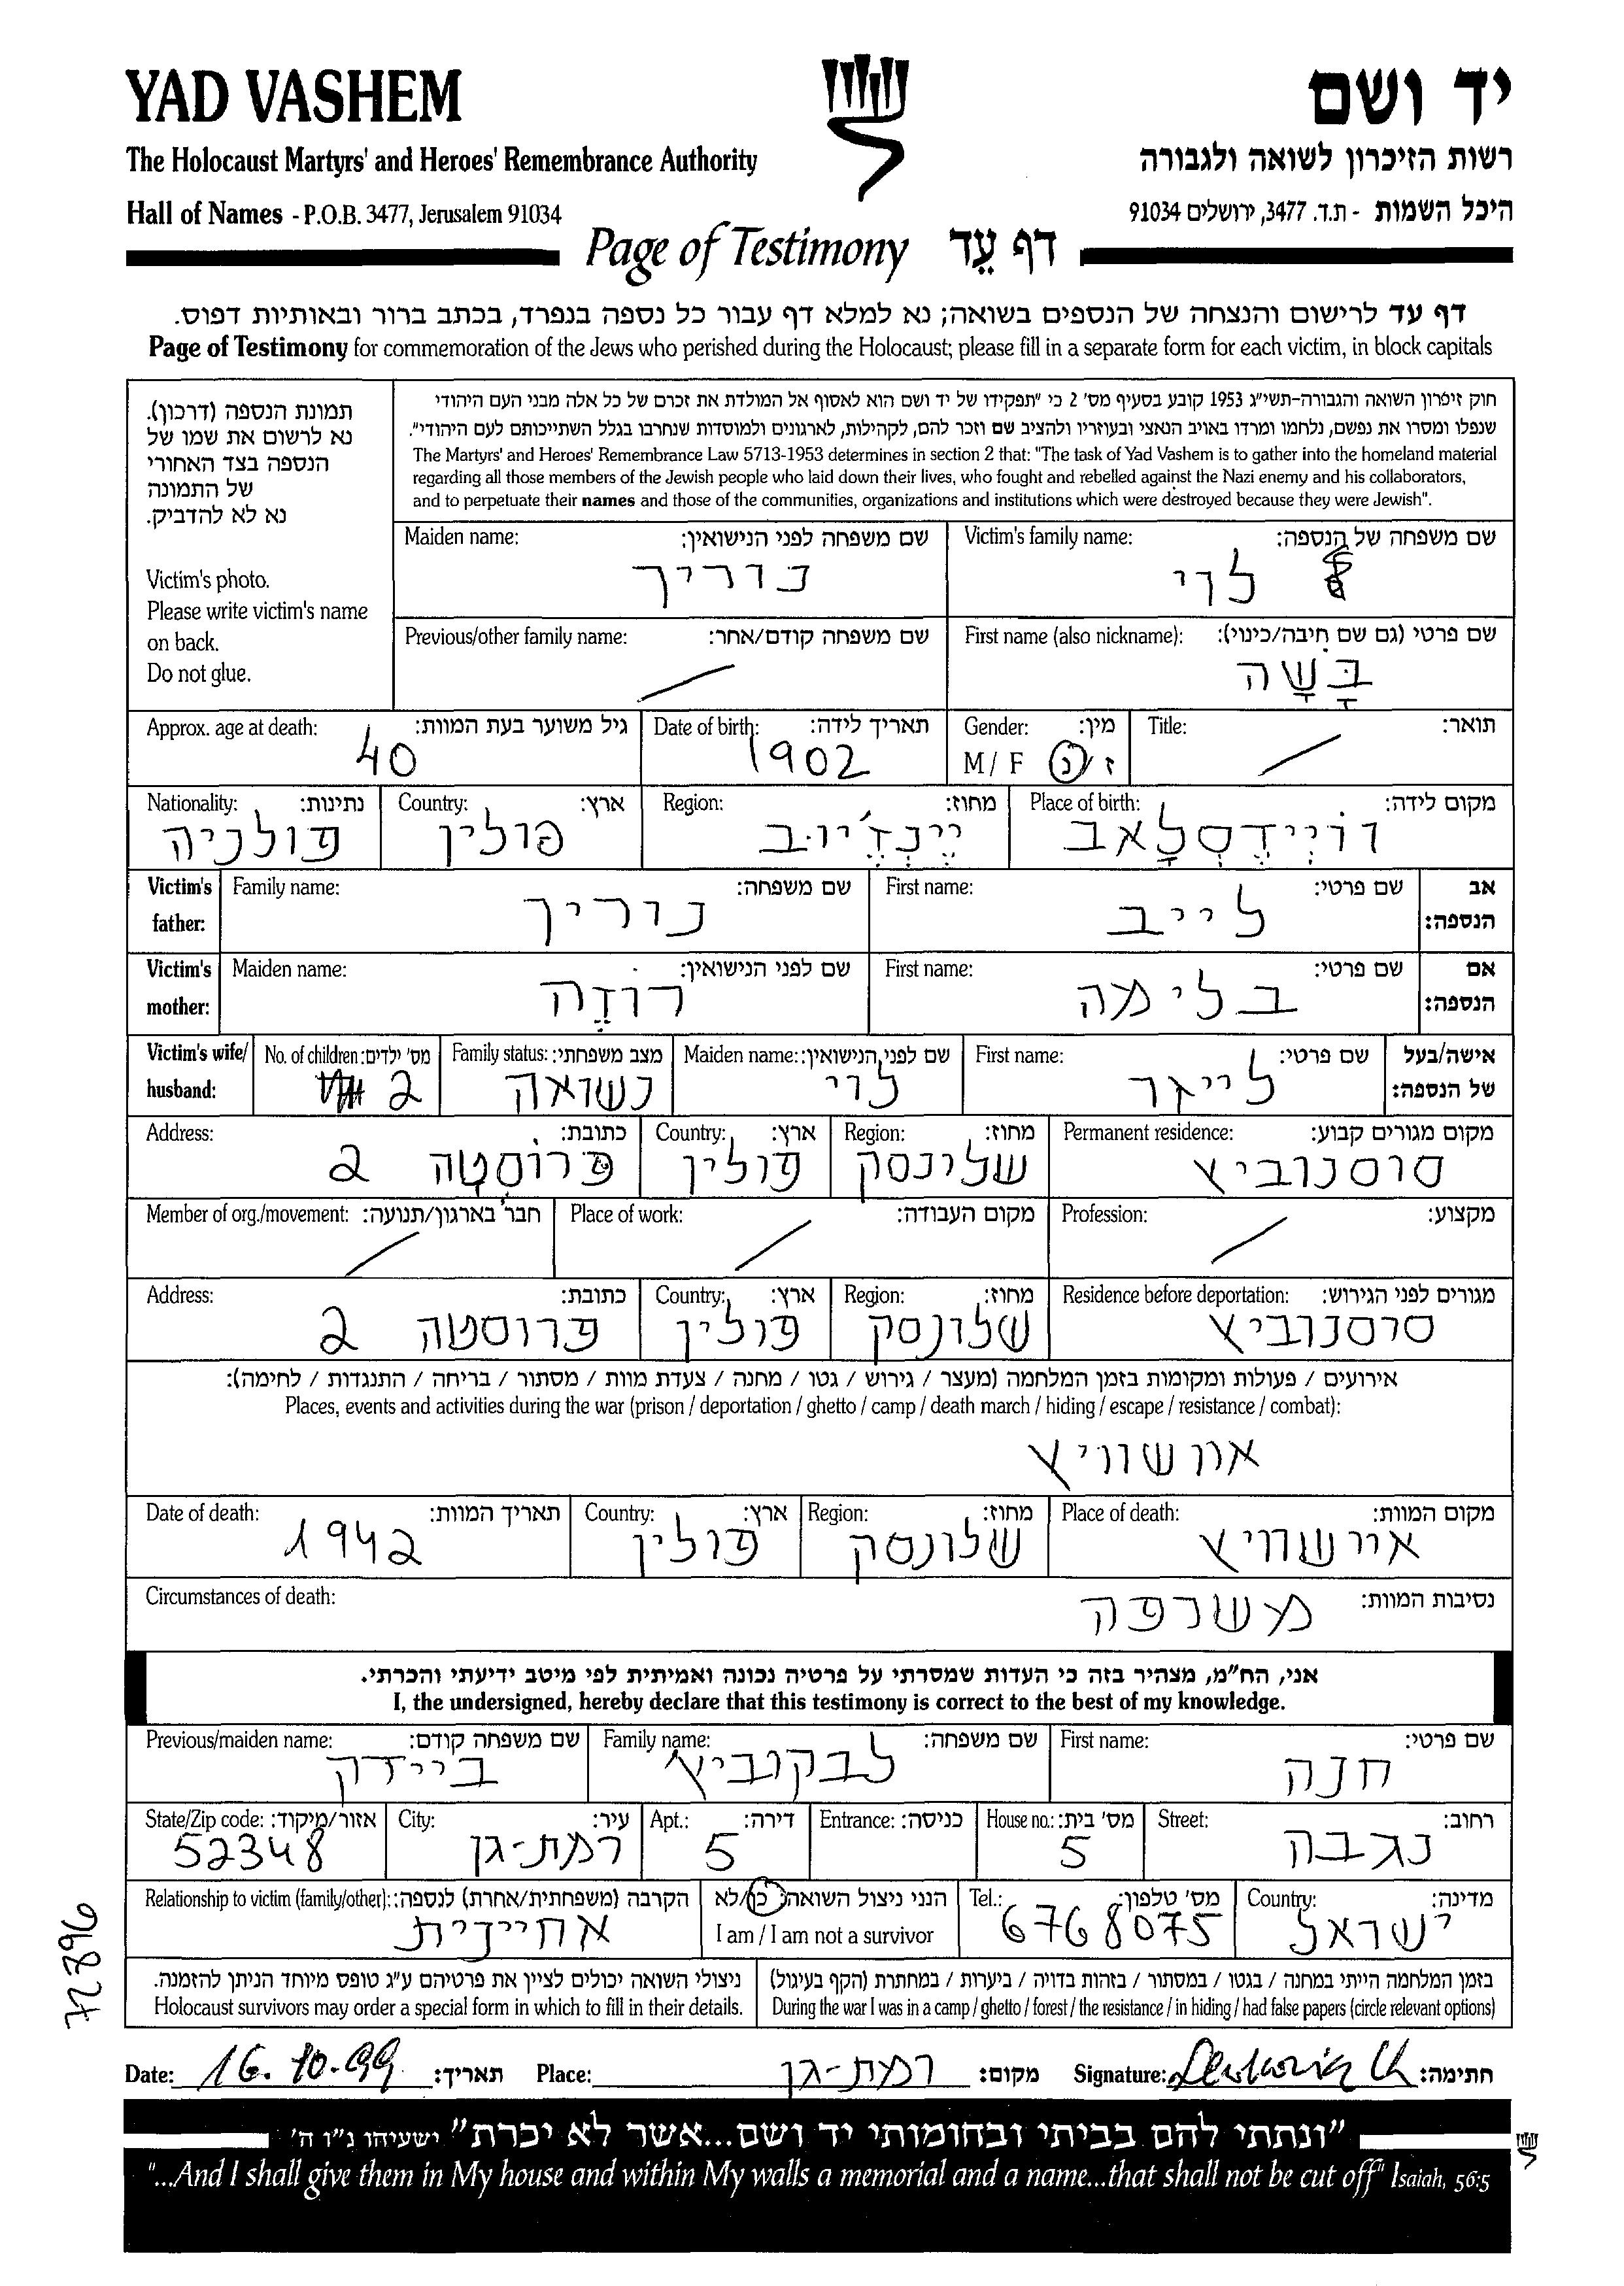 YAD VASHEM
יד ושם
The Holocaust Martyrs' and Heroes' Remembrance Authority
רשות הזיכרון לשואה ולגבורה
Hall of Names - P.O.B. 3477, Jerusalem 91034
היכל השמות - ת.ד. 3477, ירושלים 91034
Page of Testimony דף עֵד
דף עד לרישום והנצחה של הנספים בשואה; נא למלא דף עבור כל נספה בנפרד, בכתב ברור ובאותיות דפוס.
Page of Testimony for commemoration of the Jews who perished during the Holocaust; please fill in a separate form for each victim, in block capitals
תמונת הנספה (דרכון).
נא לרשום את שמו של
הנספה בצד האחורי
של התמונה
נא לא להדביק.
Victim's photo.
Please write victim's name
on back.
Do not glue.
חוק זיכרון השואה והגבורה-תשי"ג 1953 קובע בסעיף מס' 2 כי "תפקידו של יד ושם הוא לאסוף אל המולדת את זכרם של כל אלה מבני העם היהודי
שנפלו ומסרו את נפשם, נלחמו ומרדו באויב הנאצי ובעוזריו ולהציב שם וזכר להם, לקהילות, לארגונים ולמוסדות שנחרבו בגלל השתייכותם לעם היהודי".
The Martyrs' and Heroes' Remembrance Law 5713-1953 determines in section 2 that: "The task of Yad Vashem is to gather into the homeland material
regarding all those members of the Jewish people who laid down their lives, who fought and rebelled against the Nazi enemy and his collaborators,
and to perpetuate their names and those of the communities, organizations and institutions which were destroyed because they were Jewish".
Victim's family name: שם משפחה של הנספה:
לוי
Maiden name: שם משפחה לפני הנישואין:
נוריך
First name (also nickname): שם פרטי (גם שם חיבה/כינוי):
בָּשָׁה
Previous/other family name: שם משפחה קודם/אחר:
/
Title: תואר:
/
Gender: מין:
M / F ז / נ
Date of birth: תאריך לידה:
1902
Approx. age at death: גיל משוער בעת המוות:
40
Place of birth: מקום לידה:
Region: מחוז:
Country: ארץ:
פולין
Nationality: נתינות:
פולניה
Victim's father: אב הנספה:
First name: שם פרטי:
לייב
Family name: שם משפחה:
נוריך
Victim's mother: אם הנספה:
First name: שם פרטי:
בלימה
Maiden name: שם לפני הנישואין:
רוזֶה
Victim's wife/ husband: אישה/בעל של הנספה:
First name: שם פרטי:
לייזר
Maiden name: שם לפני הנישואין:
לוי
Family status: מצב משפחתי:
נשואה
No. of children: מס' ילדים:
2
Permanent residence: מקום מגורים קבוע:
סוסנוביץ
Region: מחוז:
שלינסק
Country: ארץ:
פולין
Address: כתובת:
פרוסטה 2
Profession: מקצוע:
/
Place of work: מקום העבודה:
/
Member of org./movement: חבר בארגון/תנועה:
/
Residence before deportation: מגורים לפני הגירוש:
סוסנוביץ
Region: מחוז:
שלונסק
Country: ארץ:
פולין
Address: כתובת:
פרוסטה 2
אירועים / פעולות ומקומות בזמן המלחמה (מעצר / גירוש / גטו / מחנה / צעדת מוות / מסתור / בריחה / התנגדות / לחימה):
Places, events and activities during the war (prison / deportation / ghetto / camp / death march / hiding / escape / resistance / combat):
אוושוויץ
Place of death: מקום המוות:
אוישוויץ
Region: מחוז:
שלונסק
Country: ארץ:
פולין
Date of death: תאריך המוות:
1942
Circumstances of death: נסיבות המוות:
משרפה
אני, הח"מ, מצהיר בזה כי העדות שמסרתי על פרטיה נכונה ואמיתית לפי מיטב ידיעתי והכרתי.
I, the undersigned, hereby declare that this testimony is correct to the best of my knowledge.
First name: שם פרטי:
חנה
Family name: שם משפחה:
לבקוביץ
Previous/maiden name: שם משפחה קודם:
ביידק
Street: רחוב:
נגבה
House no.: מס' בית:
5
Entrance: כניסה:
Apt.: דירה:
5
City: עיר:
רמת-גן
State/Zip code: אזור/מיקוד:
52348
Country: מדינה:
ישראל
Tel.: מס' טלפון:
6768075
הנני ניצול השואה: כן/לא
I am / I am not a survivor
Relationship to victim (family/other): הקרבה (משפחתית/אחרת) לנספה:
אחיינית
בזמן המלחמה הייתי במחנה / בגטו / במסתור / בזהות בדויה / ביערות / במחתרת (הקף בעיגול)
During the war I was in a camp / ghetto / forest / the resistance / in hiding / had false papers (circle relevant options)
ניצולי השואה יכולים לציין את פרטיהם ע"ג טופס מיוחד הניתן להזמנה.
Holocaust survivors may order a special form in which to fill in their details.
72896
Date: 16.10.99 תאריך:
Place: רמת-גן מקום:
Signature: חתימה:
"ונתתי להם בביתי ובחומותי יד ושם...אשר לא יכרת" ישעיהו נ"ו ה'
"...And I shall give them in My house and within My walls a memorial and a name...that shall not be cut off" Isaiah, 56:5